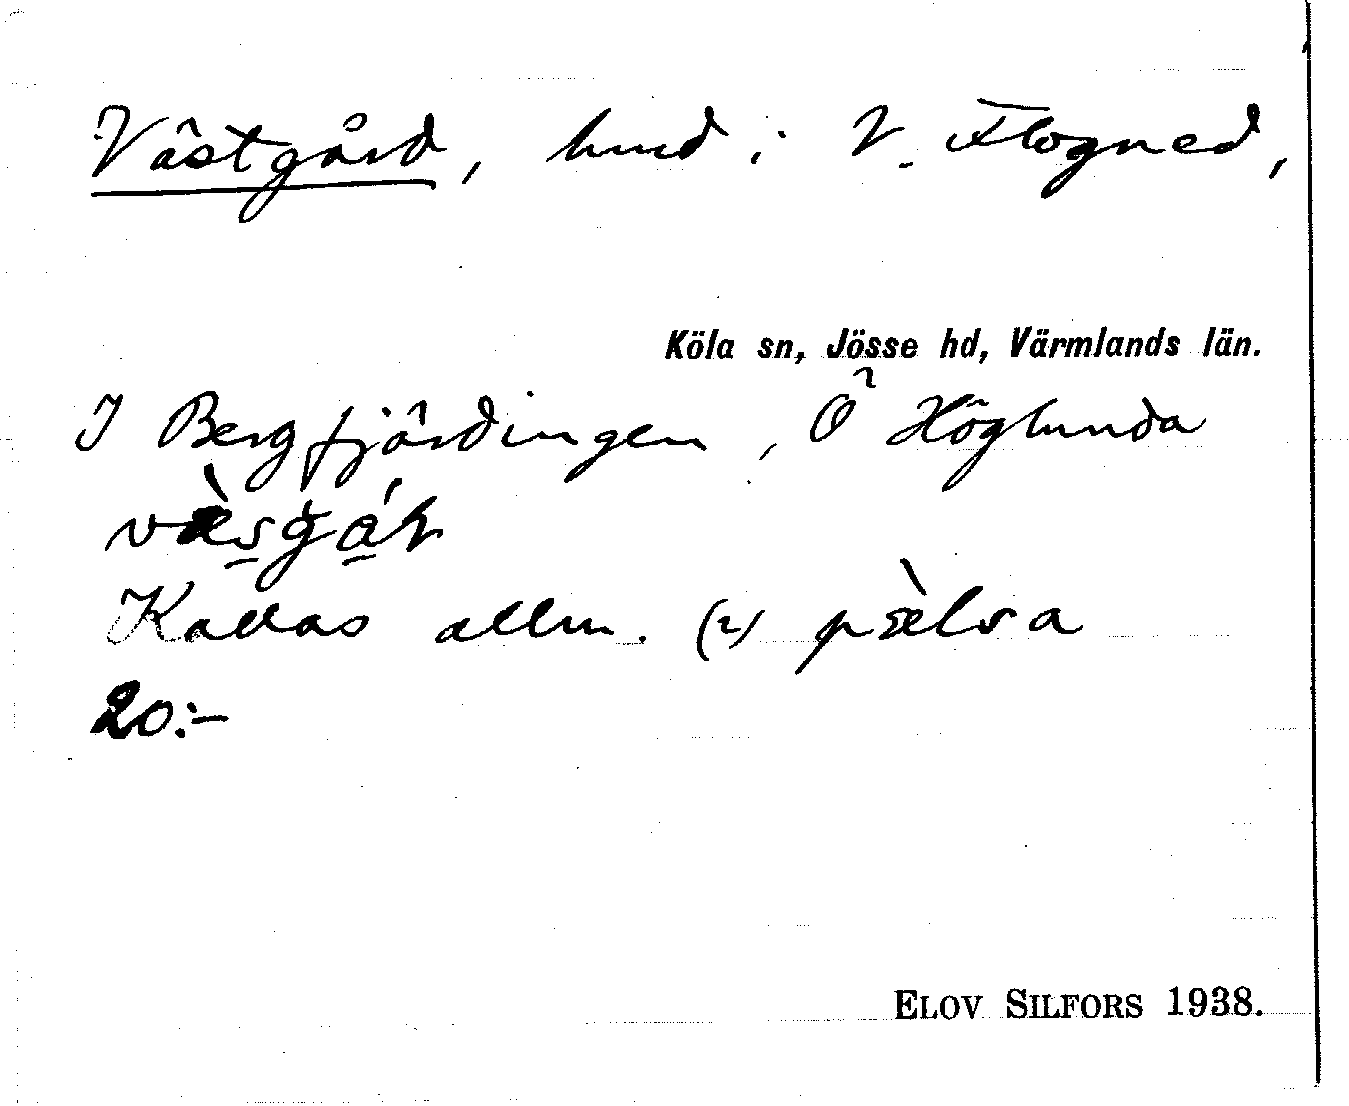 Västgård, hmd i V. Flogned,
Köla sn, Jösse hd, Värmlands län.
I Bergfjärdingen, Ö Höglunda
Kallas allm. (2) pælsa
20:-
ELOV SILFORS 1938.